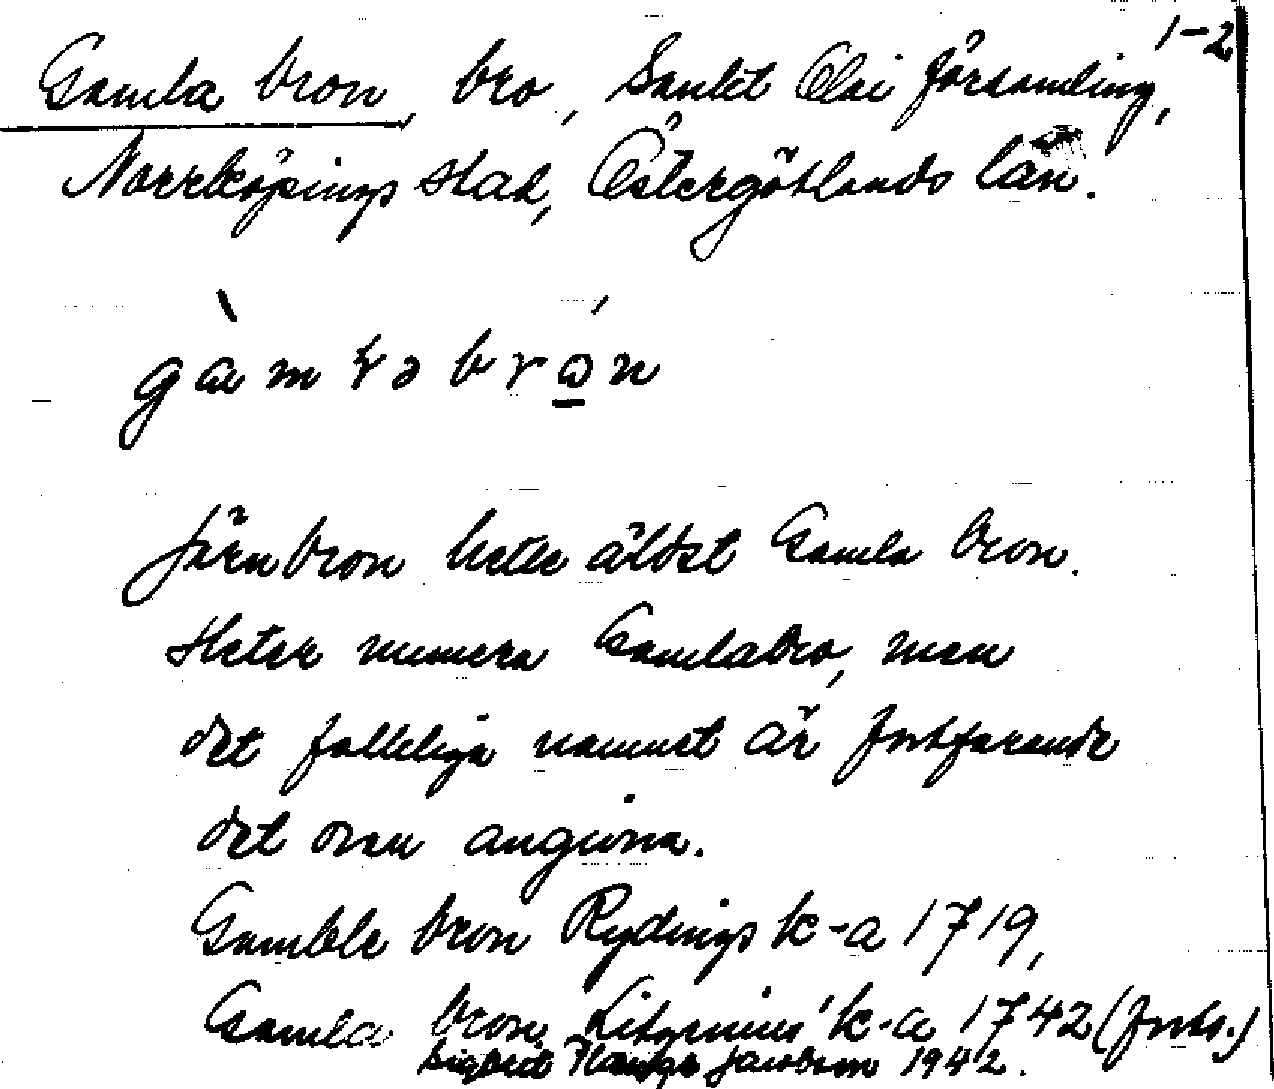 1-2
Gamla bron, bro, Sankt Olai församling,
Norrköpings stad, Östergötlands län.
gàmɽə brón
Järnbron heter äldst Gamla bron.
Heter numera Gamlabro, men
det folkliga namnet är fortfarande
det ovan angivna.
Gamble bron Rydings k-a 1719,
Gamla bron, k-a 1742 (forts.)
Jacobson 1942.